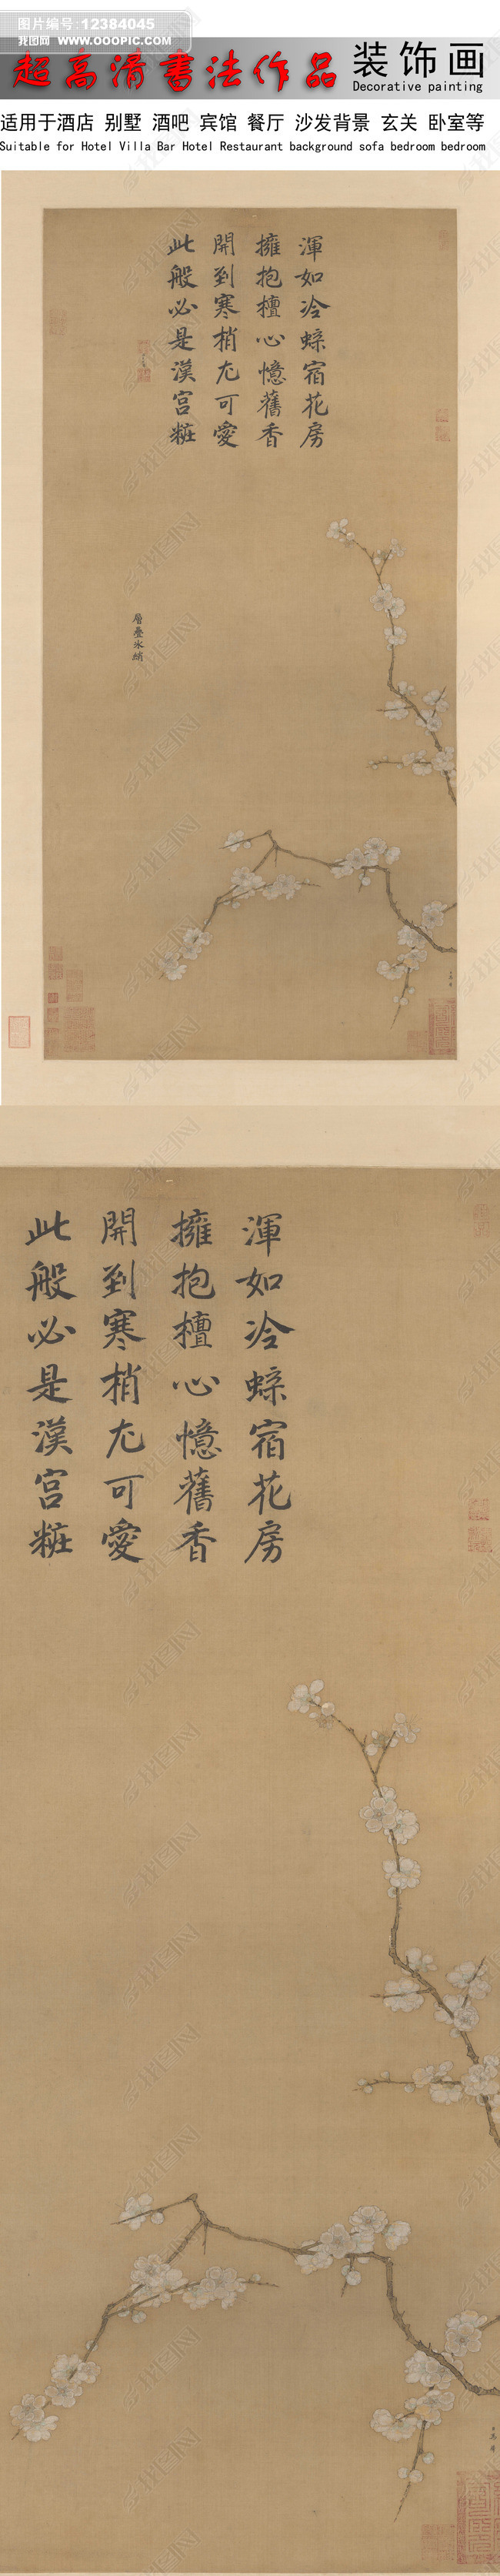 图片编号:12384045
我图网 WWW.OOOPIC.COM
超高清書法作品
装饰画
Decorative painting
适用于酒店 别墅 酒吧 宾馆 餐厅 沙发背景 玄关 卧室等
Suitable for Hotel Villa Bar Hotel Restaurant background sofa bedroom bedroom
渾如冷蝶宿花房
擁抱檀心憶舊香
開到寒梢尤可愛
此般必是漢宮粧
層疊冰綃
渾如冷蝶宿花房
擁抱檀心憶舊香
開到寒梢尤可愛
此般必是漢宮粧